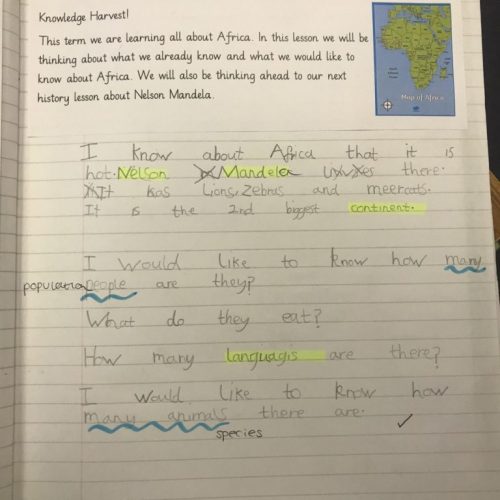 Knowledge Harvest!
This term we are learning all about Africa. In this lesson we will be
thinking about what we already know and what we would like to
know about Africa. We will also be thinking ahead to our next
history lesson about Nelson Mandela.
Map of Africa
I know about Africa that it is
hot. Nelson Mandela there.
It has Lions, Zebras and meercats.
It is the 2nd biggest continent.
I would like to know how many
population
people are they?
What do they eat?
How many languagis are there?
I would like to know how
many animals there are.
species